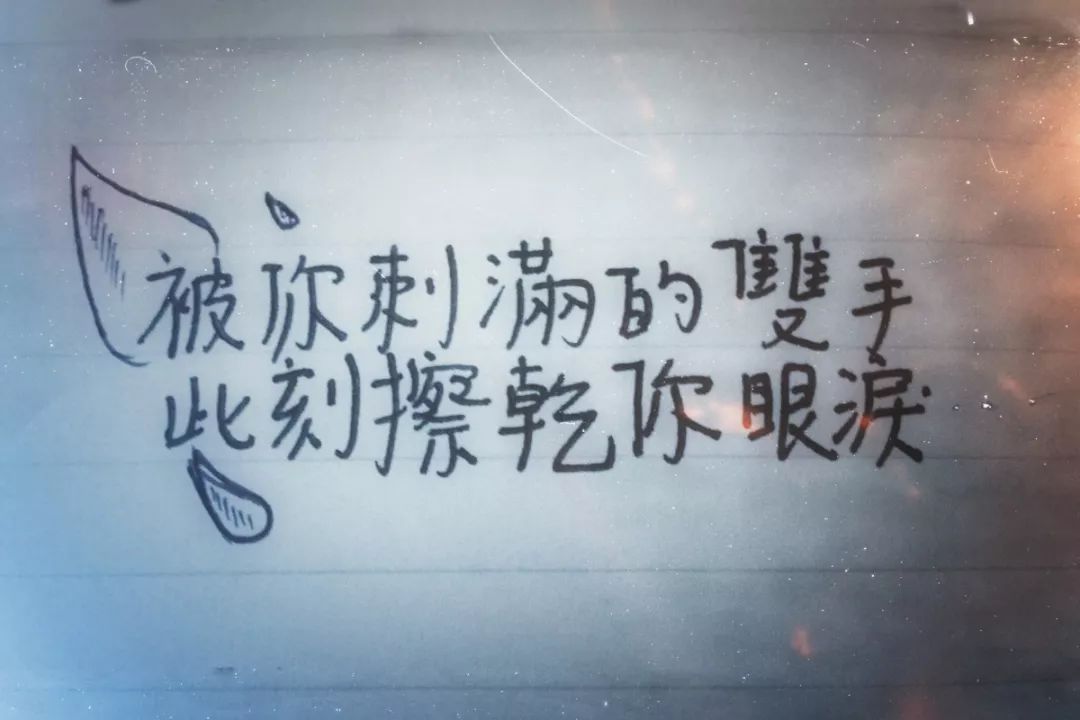 被你刺滿的雙手
此刻擦乾你眼淚